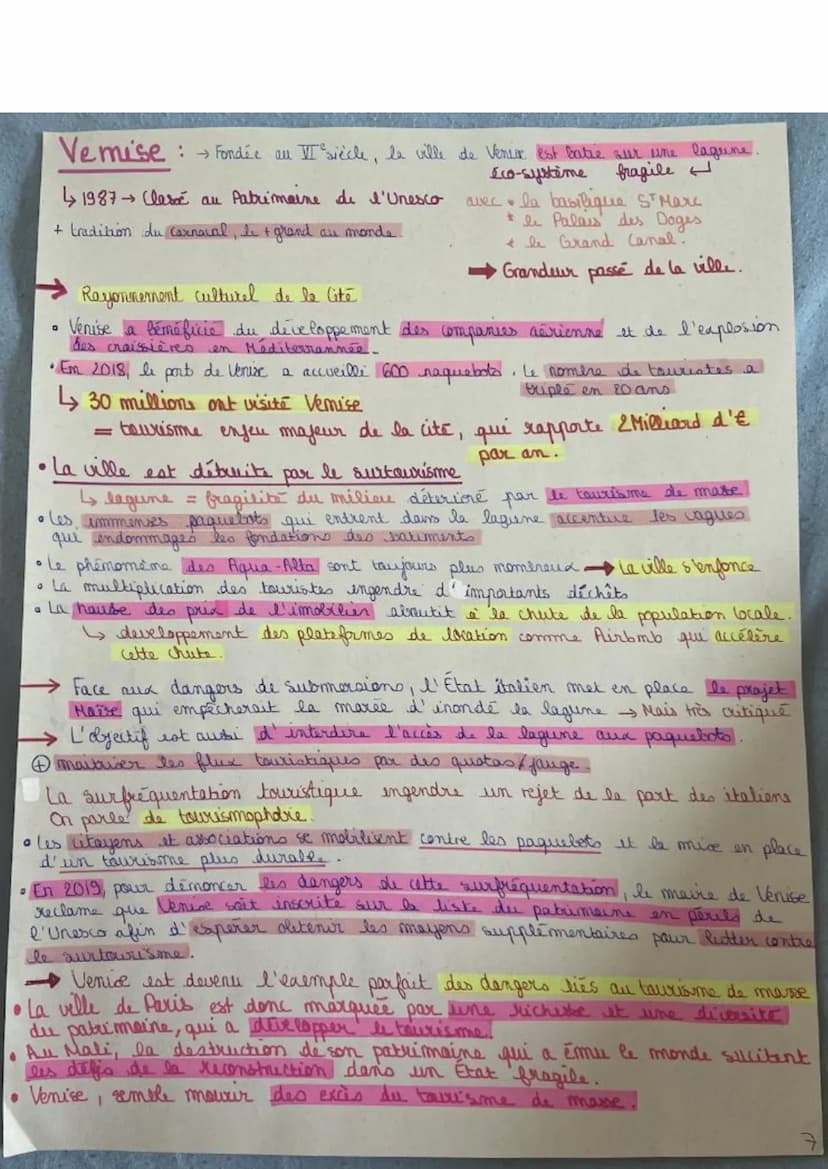 Venise : → Fondée au VIe siècle, la ville de Venise est batie sur une lagune.
Eco-système fragile ↵
↳ 1987 → Classé au Patrimoine de l'Unesco avec • la basilique St Marc
• le Palais des Doges
+ tradition du carnaval, le + grand au monde.
• le Grand Canal.
➡ Grandeur passé de la ville.
→ Rayonnement culturel de la Cité
• Venise a bénéficié du développement des companies aérienne et de l'explosion
des craissières en Méditerrannée.
• En 2018, le port de Venise a accueilli 600 paquebots. Le nombre de touristes a
triplé en 20 ans
↳ 30 millions ont visité Venise
= tourisme enjeu majeur de la cité, qui rapporte 2 Milliard d'€
par an.
• La ville est détruite par le surtourisme
↳ lagune = fragilité du milieu déterioré par le tourisme de masse
• Les immenses paquebots qui entrent dans la lagune accentue les vagues
qui endommages les fondations des batiments
• Le phénomème des Aqua-Alta sont toujours plus nombreux → La ville s'enfonce
• La multiplication des touristes engendre d'importants déchets
• La hausse des prix de l'imobilier aboutit à la chute de la population locale.
↳ developpement des plateformes de location comme Airbnb qui accélère
cette chute.
→ Face aux dangers de submersions, l'État italien met en place le projet
Moïse qui empêcherait la marée d'inondé la lagune → Mais très critiqué
→ L'objectif est aussi d'interdire l'accès de la lagune aux paquebots.
⊕ maitriser les flux touristiques par des quotas/jauge.
La surfréquentation touristique engendre un rejet de la part des italiens
On parle de tourismophobie.
• Les citoyens et associations se mobilisent contre les paquebots et la mise en place
d'un tourisme plus durable.
• En 2019, pour dénoncer les dangers de cette surfréquentation, le maire de Venise
reclame que Venise soit inscrite sur la liste du patrimoine en périls de
l'Unesco afin d'espérer obtenir les moyens supplémentaires pour lutter contre
le surtourisme.
→ Venise est devenu l'exemple parfait des dangers liés au tourisme de masse
• La ville de Paris est donc marquée par une richesse et une diversité
du patrimoine, qui a développer le tourisme.
• Au Mali, la destruction de son patrimoine qui a ému le monde sucitent
les défis de la reconstruction dans un État fragile.
• Venise, semble mourir des excès du tourisme de masse.
7